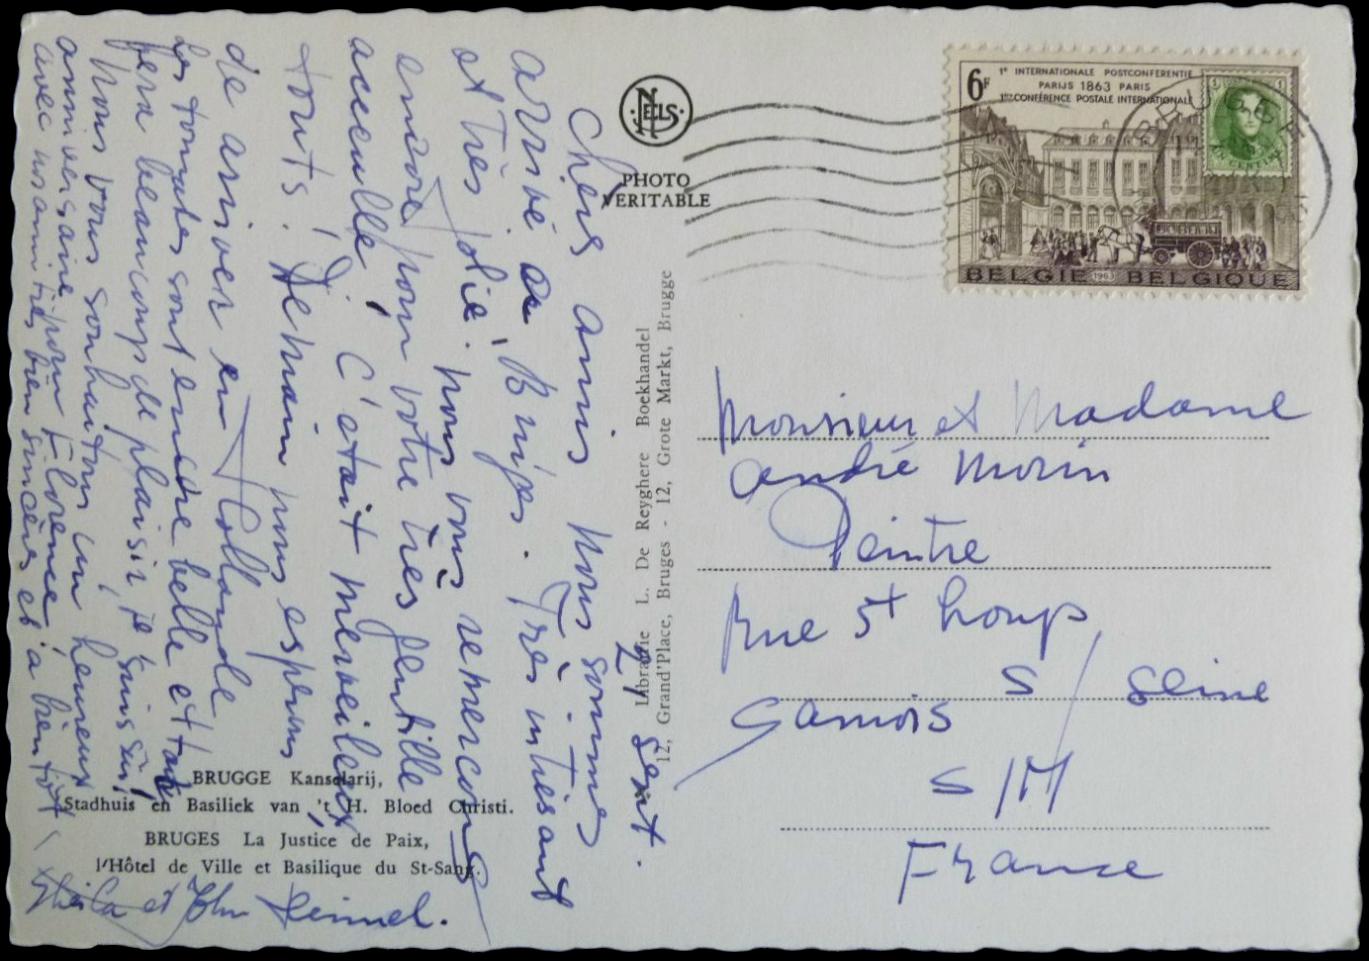 21 Sept.
Chers amis nous sommes
arrivé a Bruges. Très intresant
et très jolie. nous vous remercons
encore pour votre très gentille
acceuille! C'était merveileux
touts! Demain nous esperons
de arriver en Hollande
Les tomates sont encore belle et
fera beaucoup de plaisir je suis sûr!
Nous vous souhaitons un heureux
anniversaire pour Florence
avec nos amitiés bien sincères et a bientôt
et John
NELS
PHOTO
VERITABLE
Librairie L. De Reyghere Boekhandel
12, Grand'Place, Bruges - 12, Grote Markt, Brugge
BRUGGE Kanselarij,
Stadhuis en Basiliek van 't H. Bloed Christi.
BRUGES La Justice de Paix,
l'Hôtel de Ville et Basilique du St-Sang.
6F
1e INTERNATIONALE POSTCONFERENTIE
PARIJS 1863 PARIS
1ère CONFÉRENCE POSTALE INTERNATIONALE
BELGIE 1963 BELGIQUE
Monsieur et Madame
André Morin
Peintre
Rue St Loup
Samois S/Seine
S/M
France